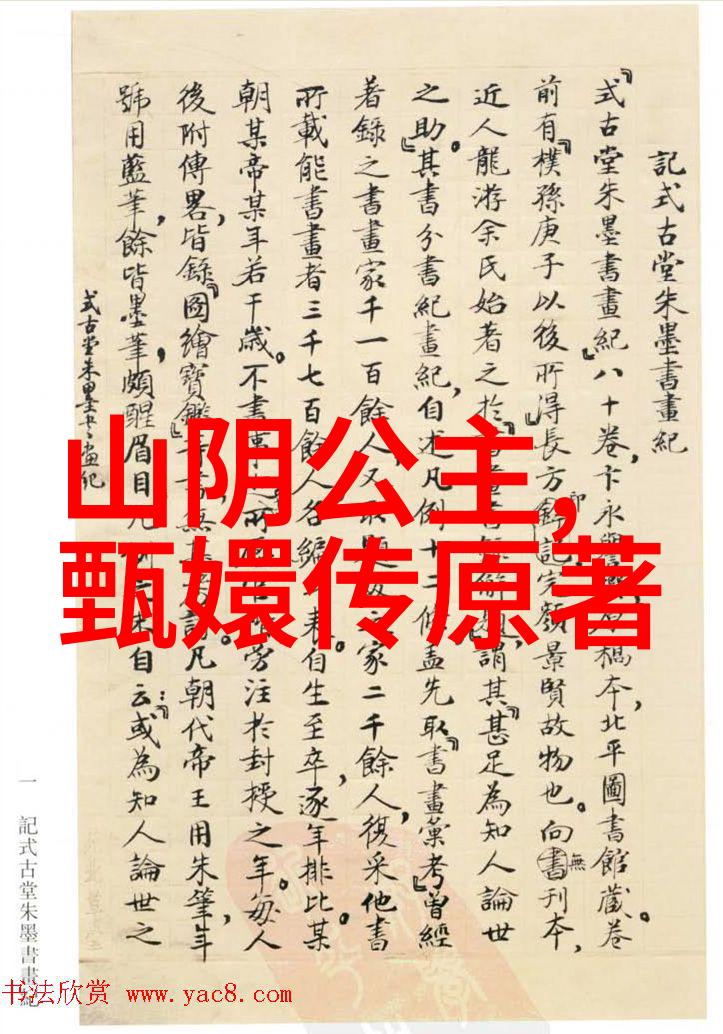 記式古堂朱墨書畫紀
『式古堂朱墨書畫紀』八十卷,卞永稿本,北平圖書館藏。卷
前有『樸孫庚子以後所得』長方印記完顏景賢故物也。向無刊本,
近人龍游余氏始著之於『謂其『甚足為知人論世
之助。』其書分書紀畫紀,自述凡例十二條蓋先取『書畫彙考』曾經
著錄之書畫家千一百餘人,又取之家二千餘人,後采他書
所載能書畫者三千七百餘人各編一表。自生至卒,逐年排比。某
朝某帝某年若干歲。不書旁注於封授之年。每人
後附傳畧,皆錄『圖繪寶鑑』凡朝代帝王用朱筆,年
號用藍筆,餘皆墨筆,頗醒眉目自云:『或為知人論世之
式古堂朱墨書畫紀
山阴公主,
甄嬛传原著
一 記式古堂朱墨書畫紀
书法欣赏 www.yac8.com